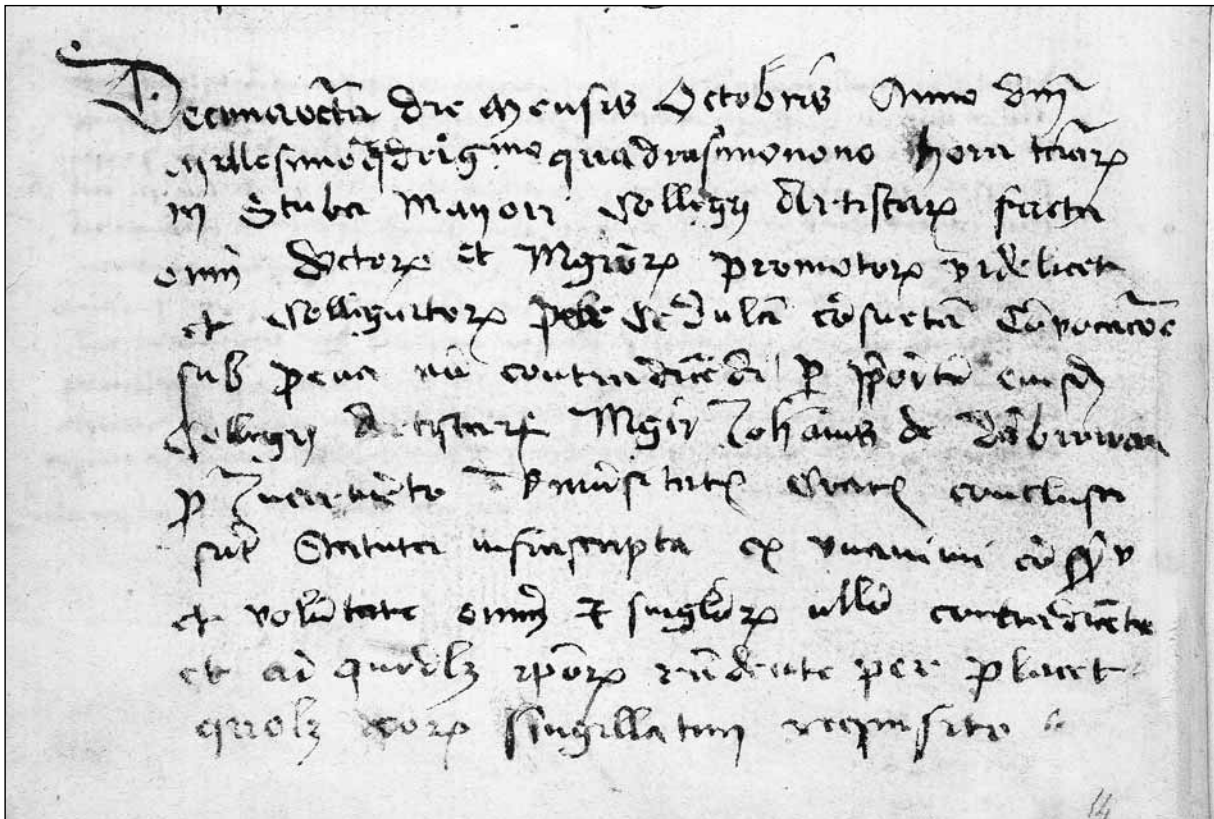 Decimaoctava die mensis Octobris Anno dni
Millesimo qdrigmo quadrasimonono hora tciarz
in Stuba Maiori Collegij Artistarz facta
omi doctorz et Mgrorz promotorz videlicet
et Collegiatorz per cedulam cosuetam Convocacoe
sub pena no contradicedi p ppositu eiusd
Collegij Artistarz Mgr Johanis de Dabrowca
p Universitatis Crac conclusa
sut Statuta infrascripta ex unanimi cosesu
et volutate omi et singlorz ullo contradicete
et ad quodlz iporz rndente per placet
quolz eorz singillatim requisito
14